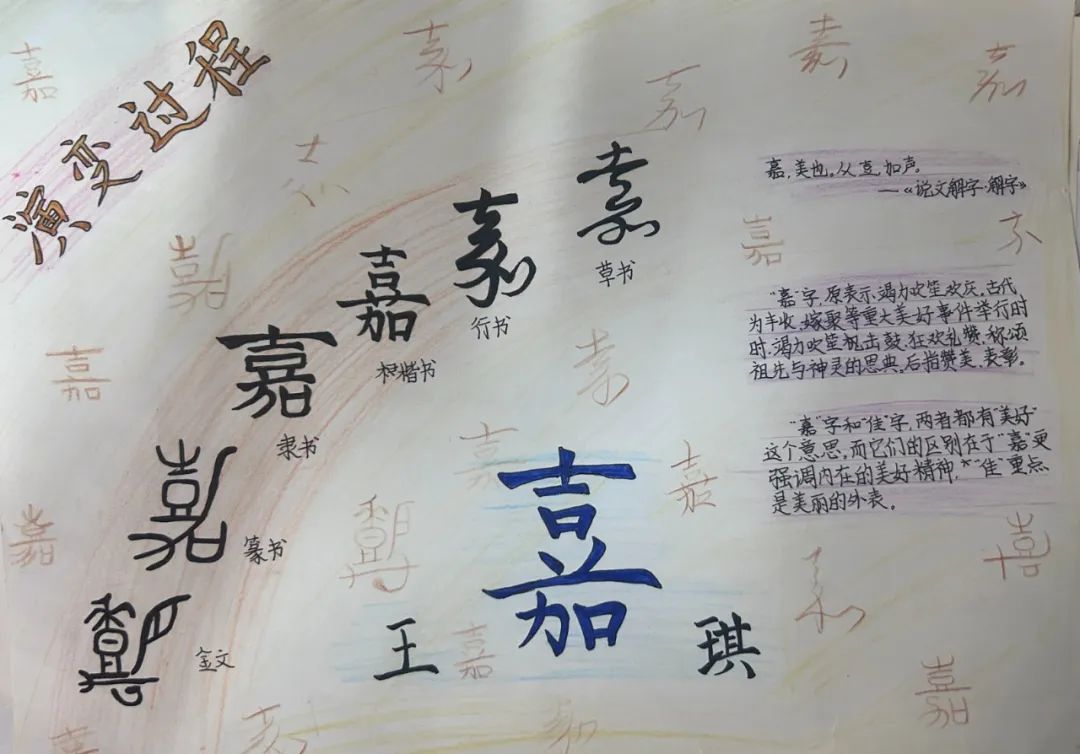 演变过程
嘉
草书
嘉
行书
嘉
楷书
嘉
隶书
嘉
篆书
嘉
金文
王嘉琪
嘉，美也。从壴，加声。
——《说文解字·解字》
"嘉"字，原表示竭力吹笙欢庆，古代
为丰收、嫁聚等重大美好事件举行时
时，竭力吹笙
击鼓，狂欢礼赞，称颂
祖先与神灵的恩典。后指赞美、表彰。
"嘉"字和"佳"字，两者都有"美好"
这个意思，而它们的区别在于"嘉"更
强调内在的美好精神，"佳"重点
是美丽的外表。